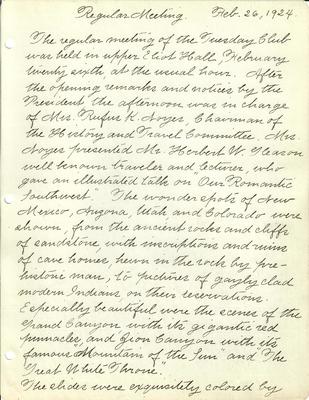 Regular Meeting. Feb. 26, 1924.
The regular meeting of the Tuesday Club
was held in upper Eliot Hall, February
twenty sixth, at the usual hour. After
the opening remarks and notices by the
President the afternoon was in charge
of Mrs. Rufus K. Noyes, Chairman of
the History and Travel Committee. Mrs.
Noyes presented Mr. Herbert W. Gleason
well known traveler and lecturer, who
gave an illustrated talk on "Our Romantic
Southwest". The wonder spots of New
Mexico, Arizona, Utah and Colorado were
shown, from the ancient rocks and cliffs
of sandstone, with inscriptions and ruins
of cave homes, hewn in the rock by pre-
historic man, to pictures of gayly clad
modern Indians, on their reservations.
Especially beautiful were the scenes of the
Grand Canyon with its gigantic red
pinnacles, and Zion Canyon with its
famous "Mountain of the Sun" and "The
Great White Throne."
The slides were exquisitely colored by